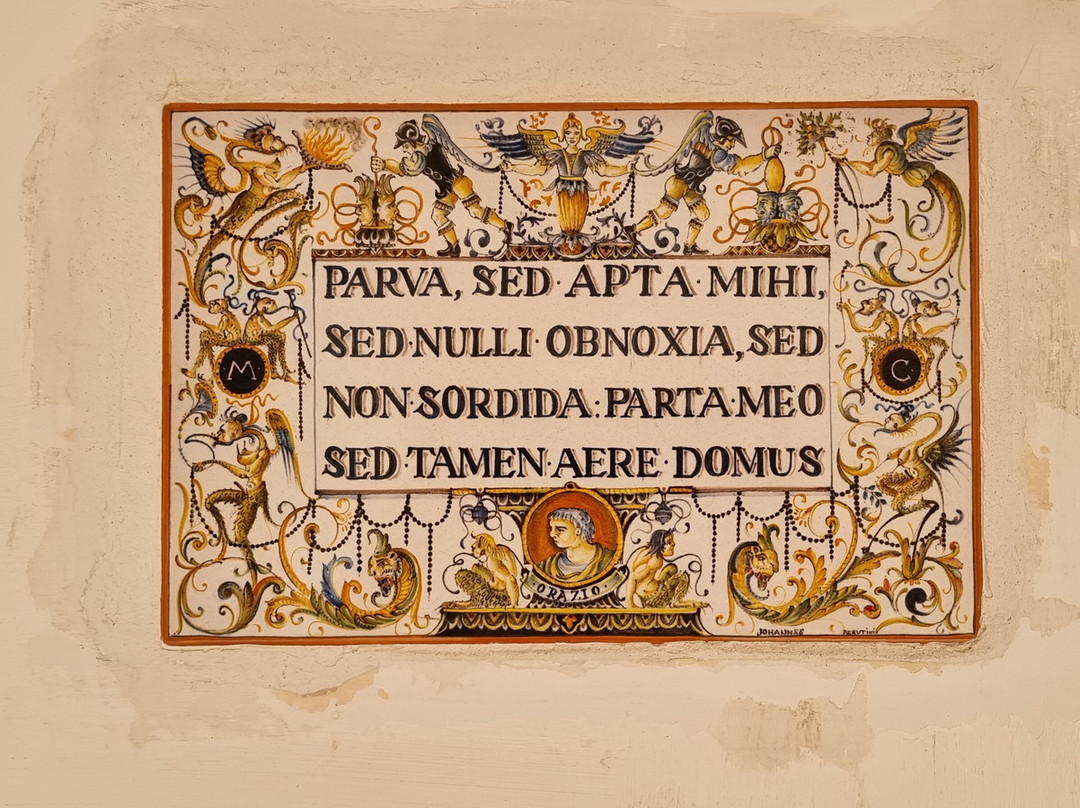 PARVA, SED·APTA·MIHI,
SED·NULLI·OBNOXIA, SED
NON·SORDIDA: PARTA·MEO
SED·TAMEN·AERE·DOMUS
M
C
ORAZIO
JOHANNES